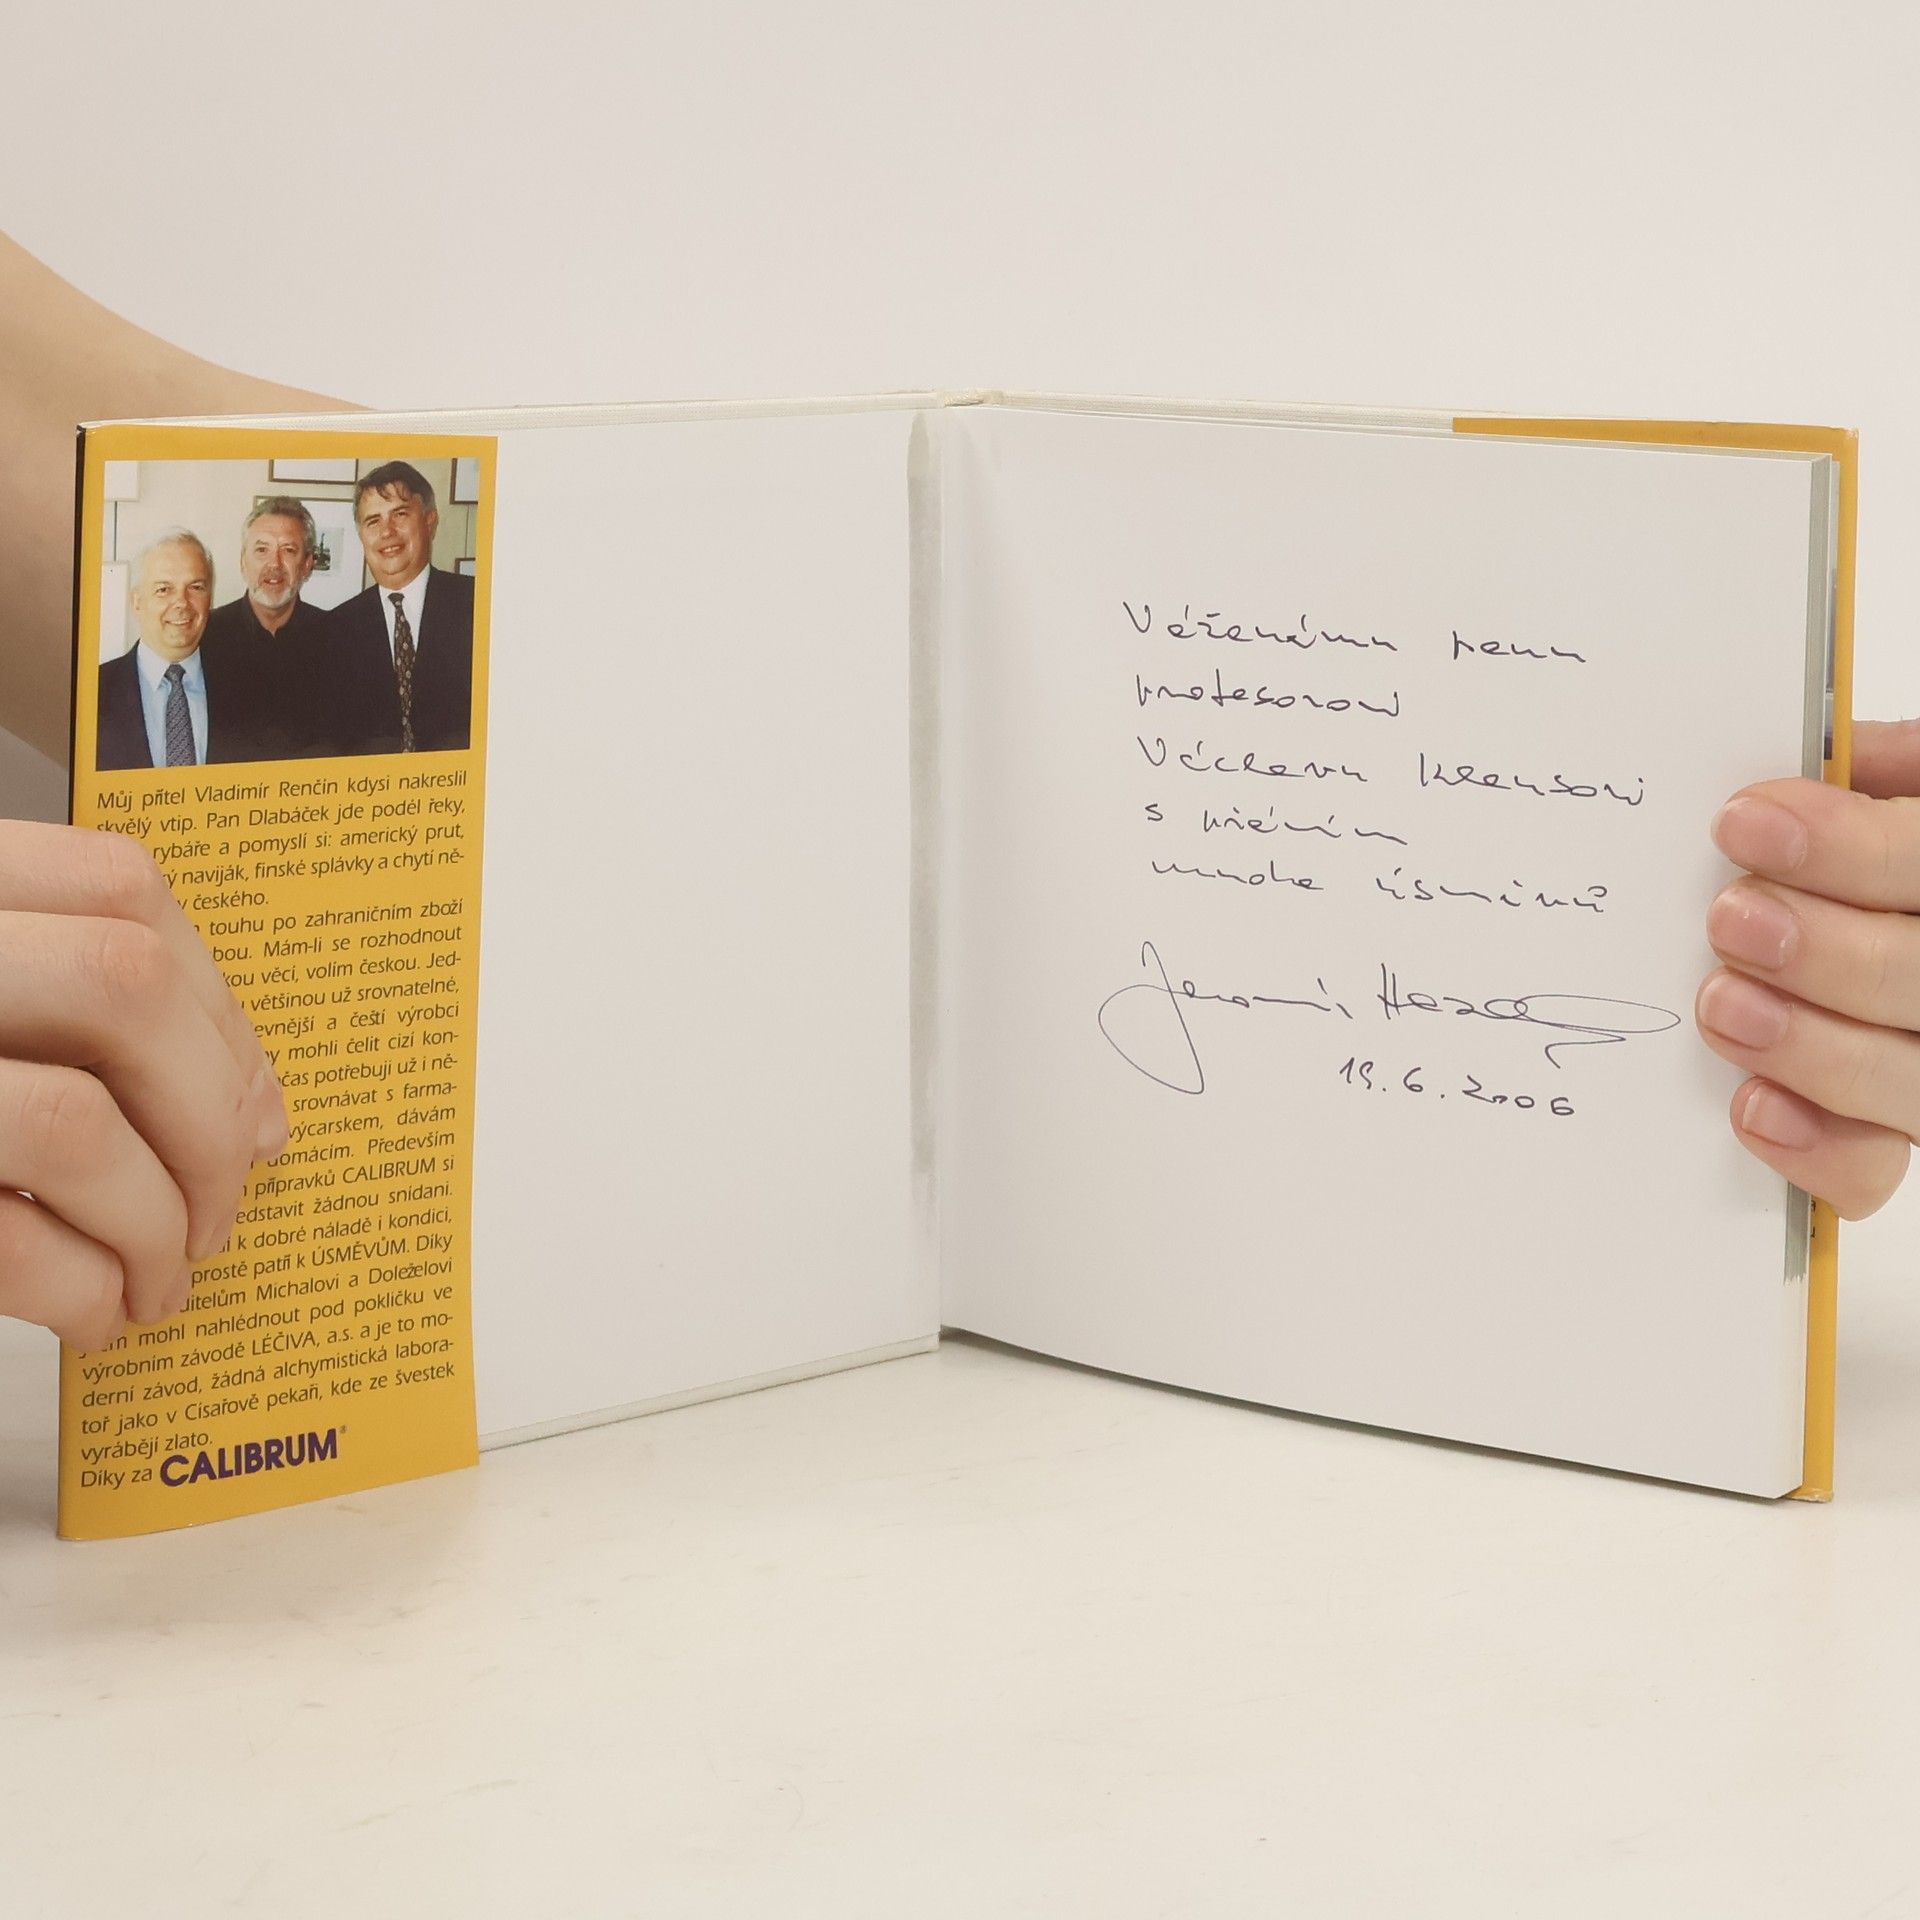 Můj přítel Vladimír Renčín kdysi nakreslil
skvělý vtip. Pan Dlabáček jde podél řeky,
rybáře a pomyslí si: americký prut,
naviják, finské splávky a chytí ně-
českého.
touhu po zahraničním zboží
bou. Mám-li se rozhodnout
kou věcí, volím českou. Jed-
většinou už srovnatelné,
evnější a čeští výrobci
mohli čelit cizí kon-
čas potřebuji už i ně-
srovnávat s farma-
výcarskem, dávám
domácím. Především
přípravků CALIBRUM si
edstavit žádnou snídani.
k dobré náladě i kondici,
prostě patří k ÚSMĚVŮM. Díky
ditelům Michalovi a Doleželovi
mohl nahlédnout pod pokličku ve
výrobním závodě LÉČIVA, a.s. a je to mo-
derní závod, žádná alchymistická labora-
toř jako v Císařově pekaři, kde ze švestek
vyrábějí zlato.
Díky za CALIBRUM®
Váženému panu
profesorovi
Václavu Klausovi
s přáním
mnoha úsměvů
Jaromír
19.6.2006